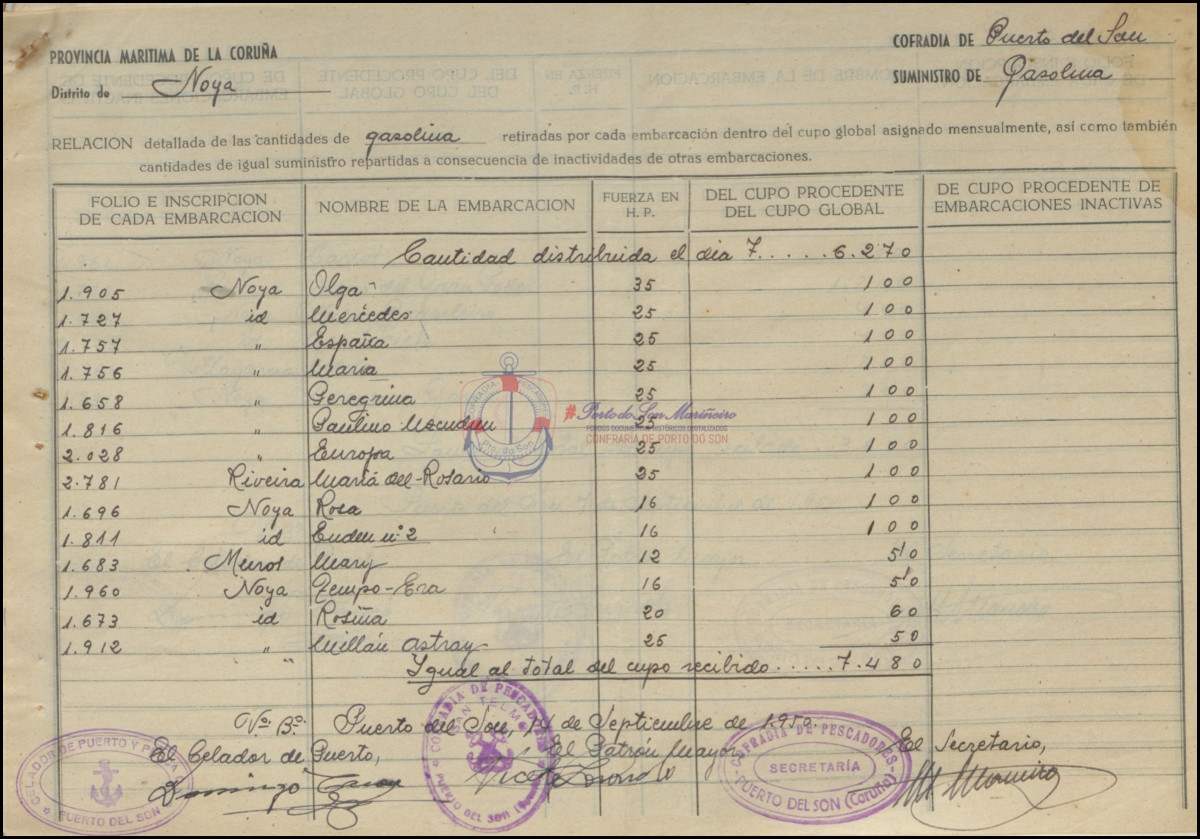 PROVINCIA MARITIMA DE LA CORUÑA
COFRADIA DE Puerto del Son
Distrito de Noya
SUMINISTRO DE Gasolina
RELACION detallada de las cantidades de gasolina retiradas por cada embarcación dentro del cupo global asignado mensualmente, así como también
cantidades de igual suministro repartidas a consecuencia de inactividades de otras embarcaciones.
FOLIO E INSCRIPCION DE CADA EMBARCACION
NOMBRE DE LA EMBARCACION
FUERZA EN H. P.
DEL CUPO PROCEDENTE DEL CUPO GLOBAL
DE CUPO PROCEDENTE DE EMBARCACIONES INACTIVAS
Cantidad distribuida el dia 7.....6.270
1.905 Noya Olga 35 100
1.727 id Mercedes 25 100
1.757 " España 25 100
1.756 " Maria 25 100
1.658 " Peregrina 25 100
1.816 " Paulino 25 100
2.028 " Europa 25 100
2.781 Riveira Maria del-Rosario 25 100
1.696 Noya Rosa 16 100
1.811 id nº 2 16 100
1.683 Muros Mary 12 50
1.960 Noya Tempo-Era 16 50
1.673 id Rosiña 20 60
1.912 " Millán Astray 25 50
" Ygual al total del cupo recibido.....7.480
Vº. Bº. Puerto del Son, de Septiembre de 1.950.
El Celador de Puerto, El Patrón Mayor El Secretario,
Domingo
CELADOR DE PUERTO Y
PUERTO DEL SON
COFRADIA DE PESCADORES
SAN TELMO
PUERTO DEL SON
COFRADIA DE PESCADORES
SECRETARÍA
PUERTO DEL SON (Coruña)
#Porto do Son Mariñeiro
FONDOS DOCUMENTAIS HISTÓRICOS DIGITALIZADOS
CONFRARÍA DE PORTO DO SON